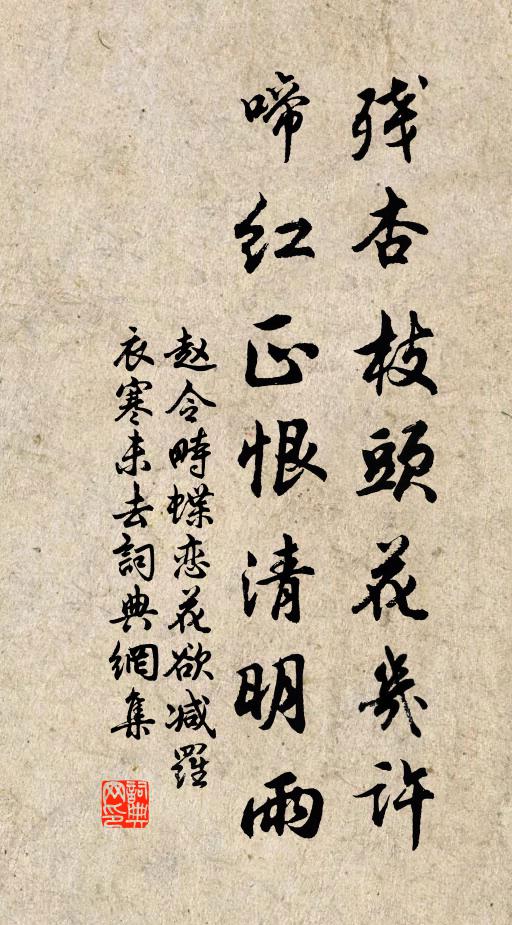 残杏枝頭花幾許
啼红正恨清明雨
赵令畤蝶恋花欲减羅
衣寒未去詞典網集
詞典
网印